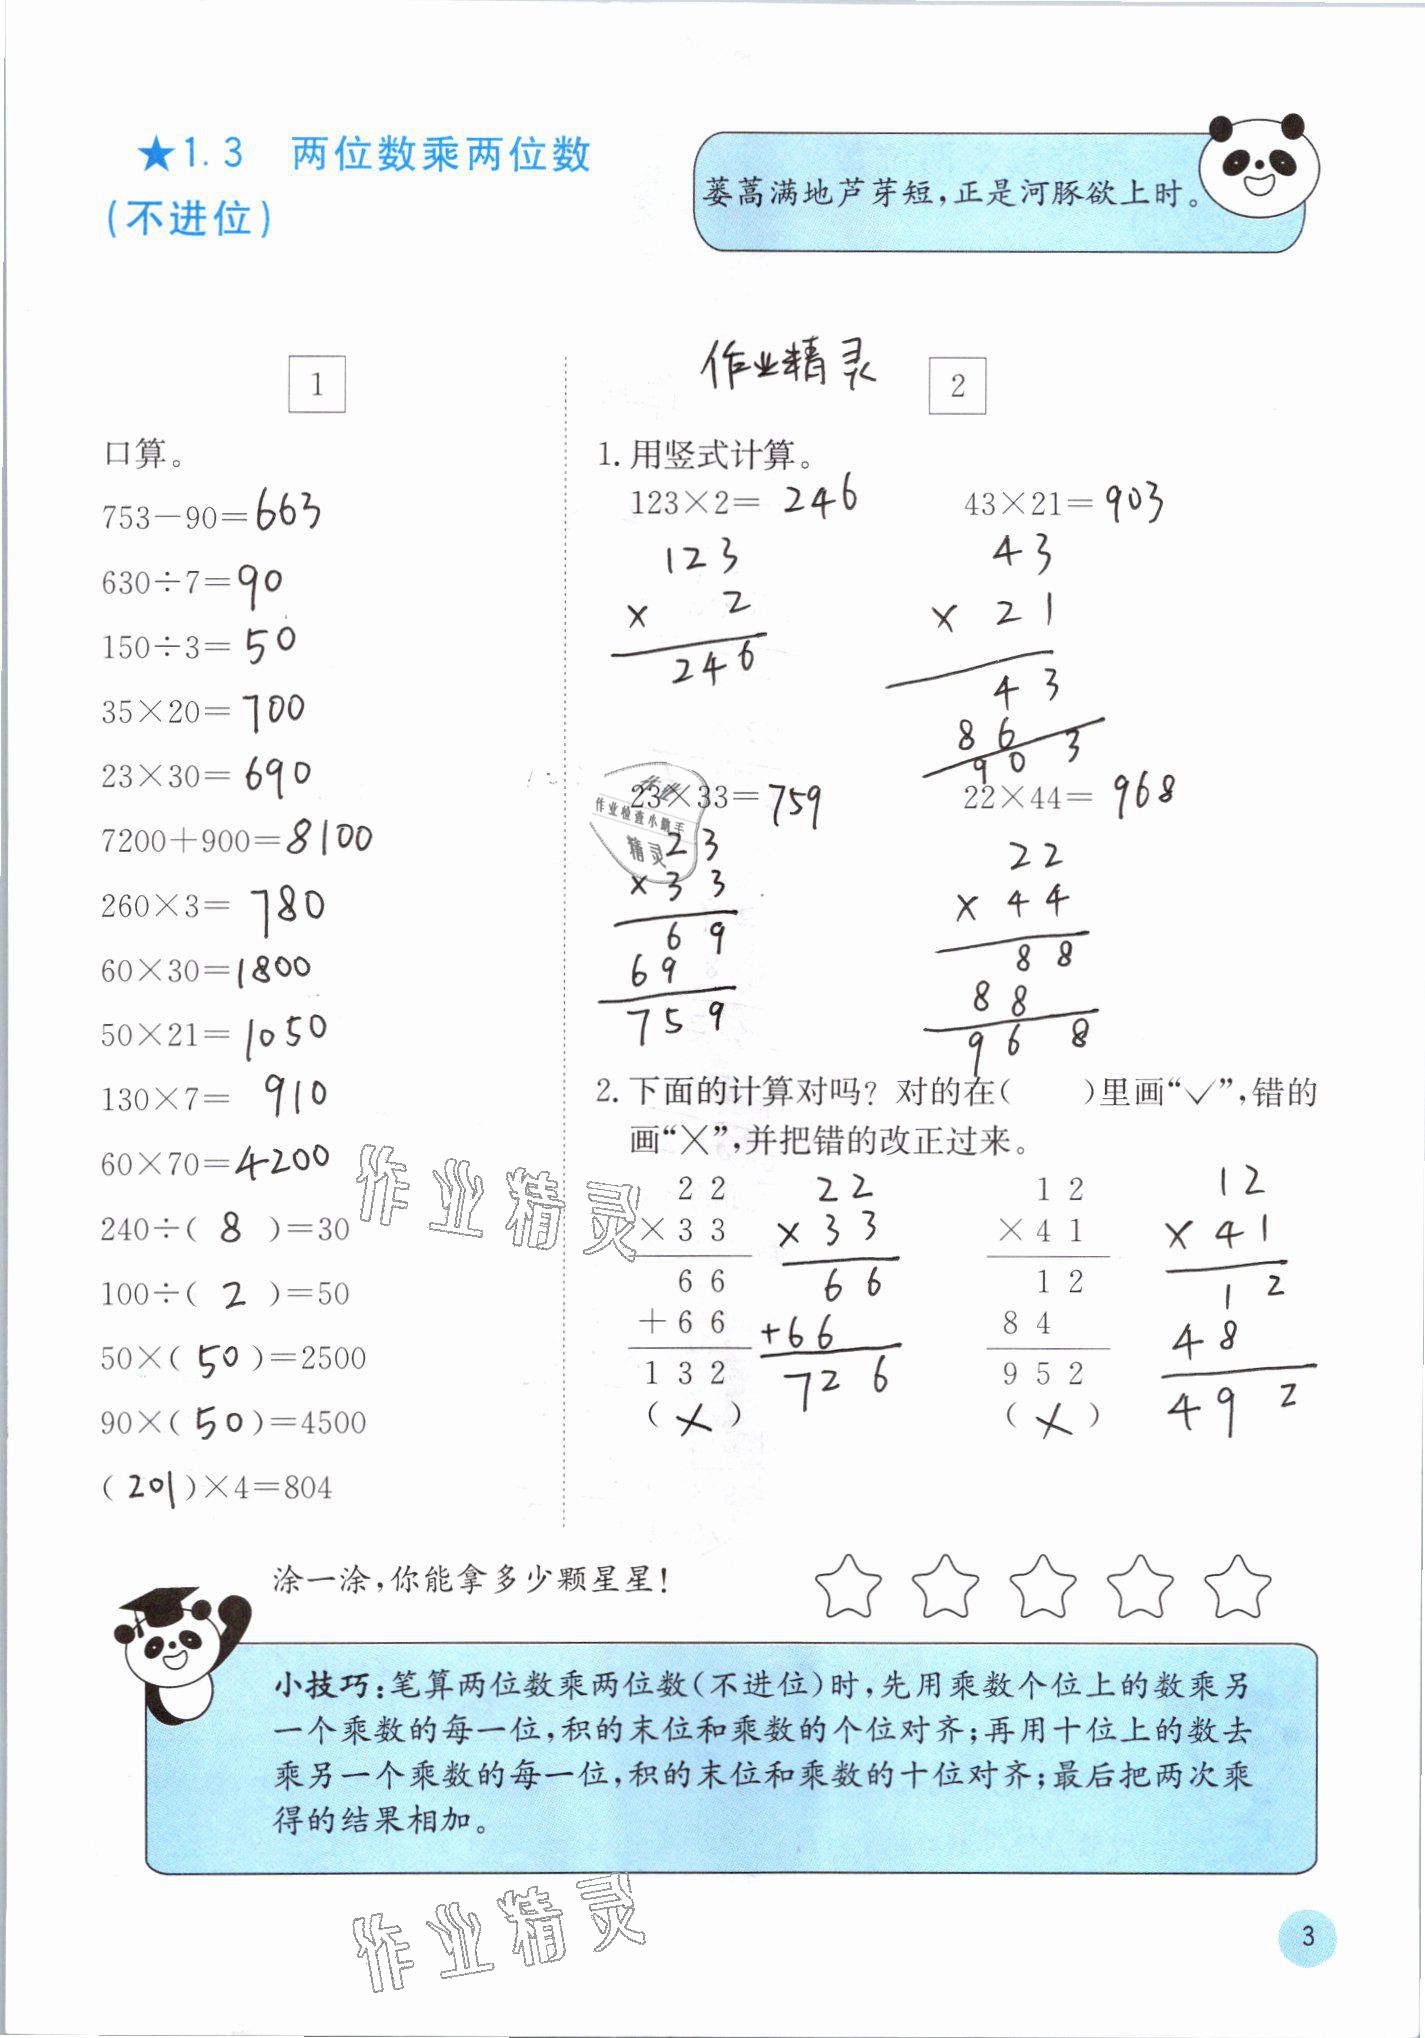 ★1.3 两位数乘两位数
(不进位)
蒌蒿满地芦芽短，正是河豚欲上时。
1
口算。
753－90＝663
630÷7＝90
150÷3＝50
35×20＝700
23×30＝690
7200＋900＝8100
260×3＝780
60×30＝1800
50×21＝1050
130×7＝910
60×70＝4200
240÷( 8 )＝30
100÷( 2 )＝50
50×( 50 )＝2500
90×( 50 )＝4500
( 201 )×4＝804
作业精灵
2
1. 用竖式计算。
123×2＝ 246 43×21＝ 903
123 43
× 2 × 21
246 43
86
903
23×33＝759 22×44＝968
作业
作业检查小助手
精灵
23 22
×33 ×44
69 88
69 88
759 968
2. 下面的计算对吗？对的在( )里画“✓”，错的
画“×”，并把错的改正过来。
22 22 12 12
×33 ×33 ×41 ×41
66 66 12 12
＋66 +66 84 48
132 726 952 492
( × ) ( × )
作业精灵
涂一涂，你能拿多少颗星星！
小技巧：笔算两位数乘两位数(不进位)时，先用乘数个位上的数乘另
一个乘数的每一位，积的末位和乘数的个位对齐；再用十位上的数去
乘另一个乘数的每一位，积的末位和乘数的十位对齐；最后把两次乘
得的结果相加。
作业精灵
3